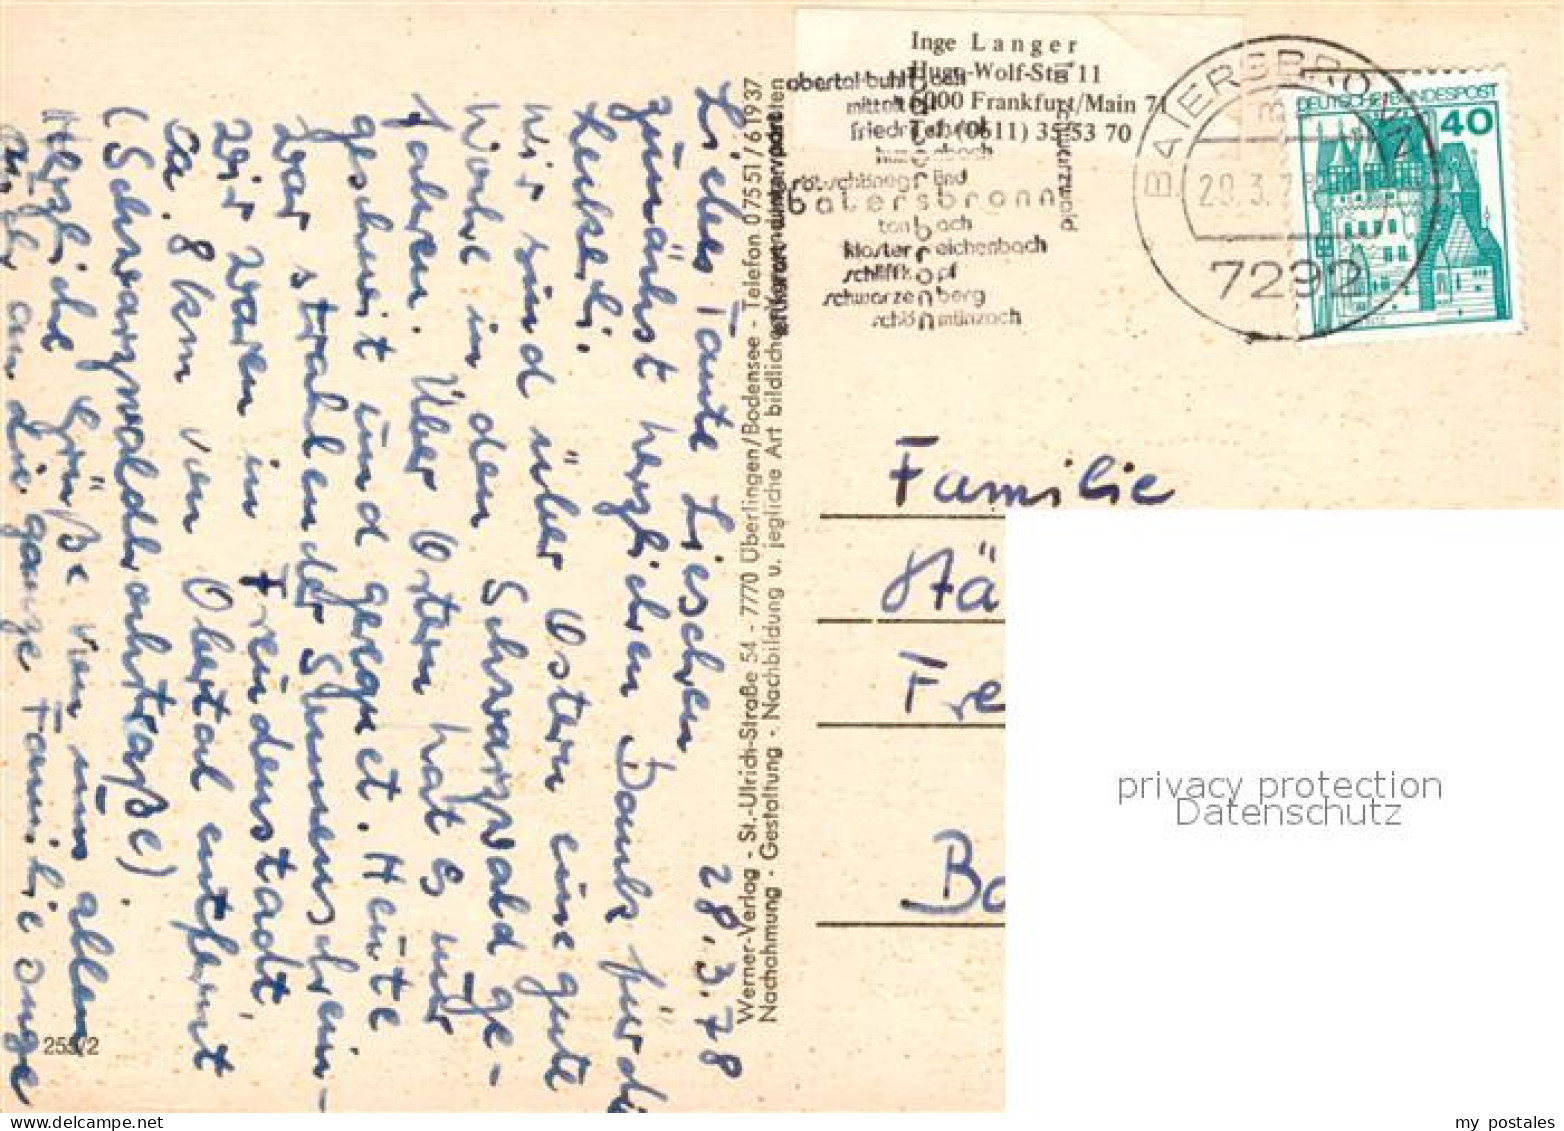 Liebes Tante Lieschen 28.3.78
zunächst herzlichen Dank für die
Leckerli.
Wir sind über Ostern eine gute
Woche in den Schwarzwald ge-
fahren. Über Ostern hat es nur
geschneit und geregnet. Heute
war strahlender Sonnenschein.
Wir waren in Freudenstadt,
ca. 8 km von Obertal entfernt
(Schwarzwaldhochstraße)
Herzliche Grüße von uns allen
auch an die ganze Familie
Inge
255/2
Werner-Verlag - St.-Ulrich-Straße 54 - 7770 Überlingen/Bodensee - Telefon 07551/61937
Nachahmung · Gestaltung · Nachbildung u. jegliche Art bildlicher
Inge Langer
Hugo-Wolf-Str. 11
6000 Frankfurt/Main 71
Tel. (0611) 35 53 70
obertal-buhlbach
mitteltal
friedrichstal
huzenbach
röt-schönegründ
baiersbronn
tonbach
kloster reichenbach
schliffkopf
schwarzenberg
schönmünzach
schwarzwald
BAIERSBRONN
29.3.78
7292
DEUTSCHE BUNDESPOST
40
Familie
Stä
Fre
Ba
privacy protection
Datenschutz
my postales